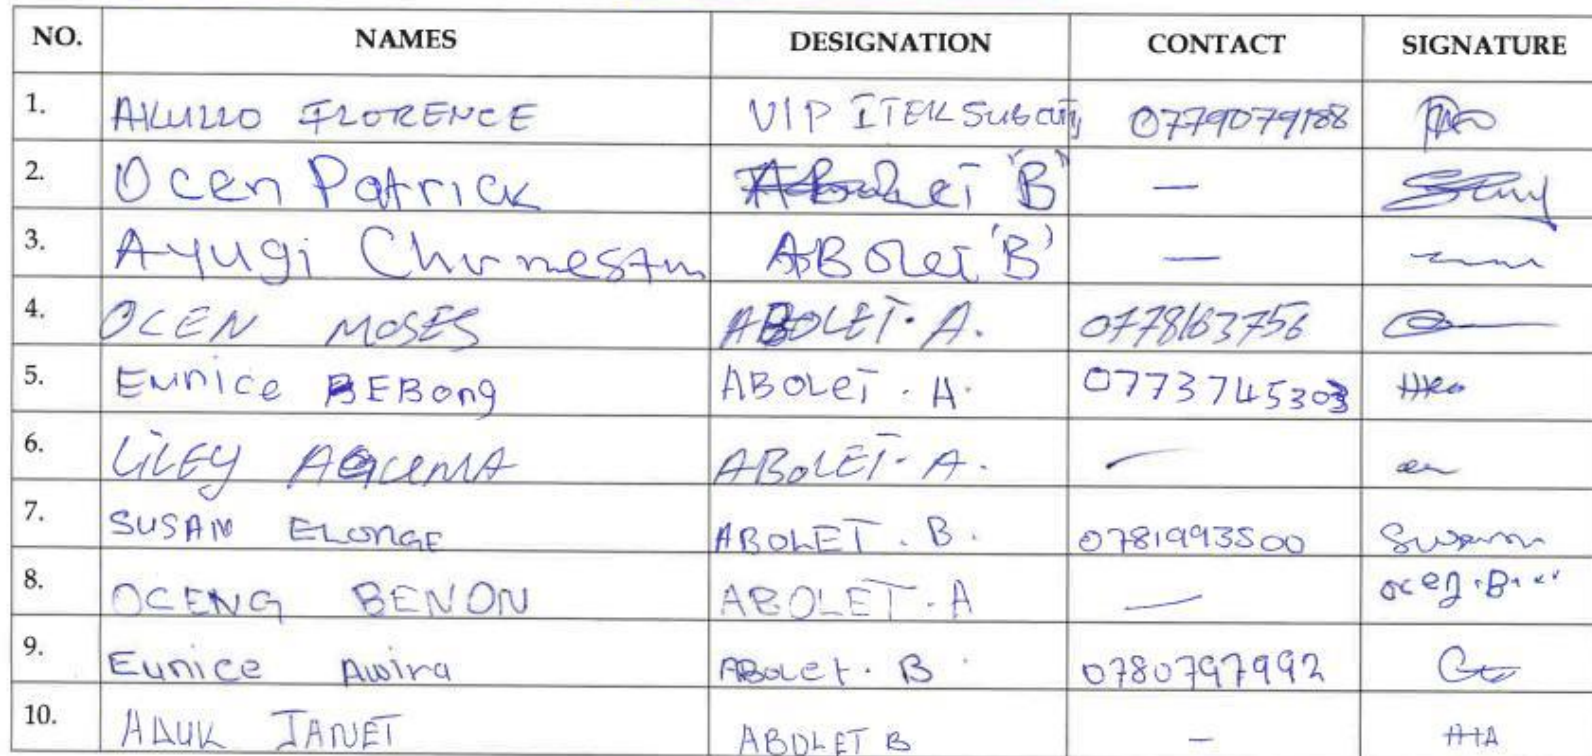 NO. NAMES DESIGNATION CONTACT SIGNATURE
1. AKULLO FLORENCE VIP ITEK Subcty 0779079188
2. Ocen Patrick ABolet 'B' —
3. Ayugi ABOLet 'B' —
4. OCEN MOSES ABOLET. A. 0778163756
5. Eunice BEBong ABOLET. A. 0773745303
6. LILEY ABOLET. A. —
7. SUSAN ELONGE ABOLET. B. 0781993500
8. OCENG BENON ABOLET. A —
9. Eunice Awira ABOLET. B 0780797992
10. JANET ABOLET B —